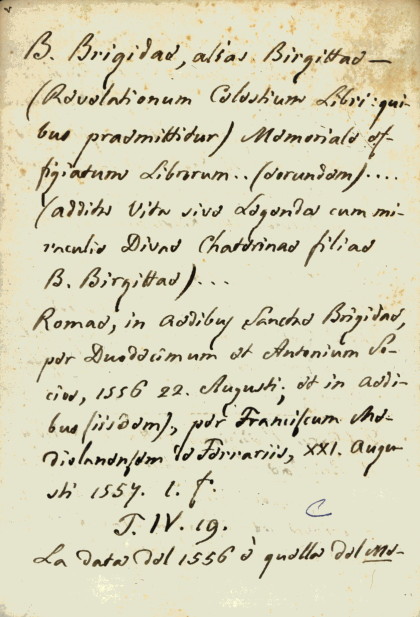 B. Brigidae, alias Birgittae —
(Revelationum Celestium Libri: qui-
bus praemittitur) Memoriale ef-
figiatum Librorum .. (eorundem) ....
(addita Vita sive Legenda cum mi-
raculis Divae Chaterinae filiae
B. Birgittae) ...
Romae, in aedibus Sanctae Brigidae,
per Duodecimum et Antonium So-
cios, 1556 22. Augusti; et in aedi-
bus (iisdem), per Franciscum Me-
diolanensem de Ferrariis, XXI. Augu-
sti 1557. l. f.
T. IV. 19.
C
La data del 1556 è quella del Me-